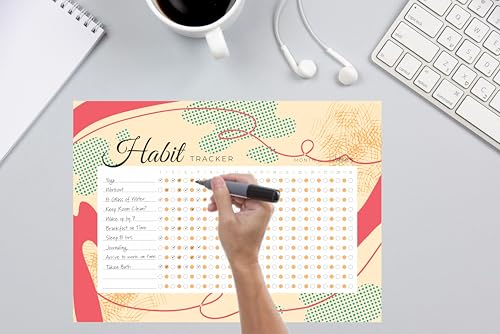 Habit TRACKER
MONTH
Yoga
Workout
8 Glass of Water
Keep Room Clean?
Wake up by 7
Breakfast on Time
Sleep 8 hrs
Journaling
Arrive to work on time
Taken Bath